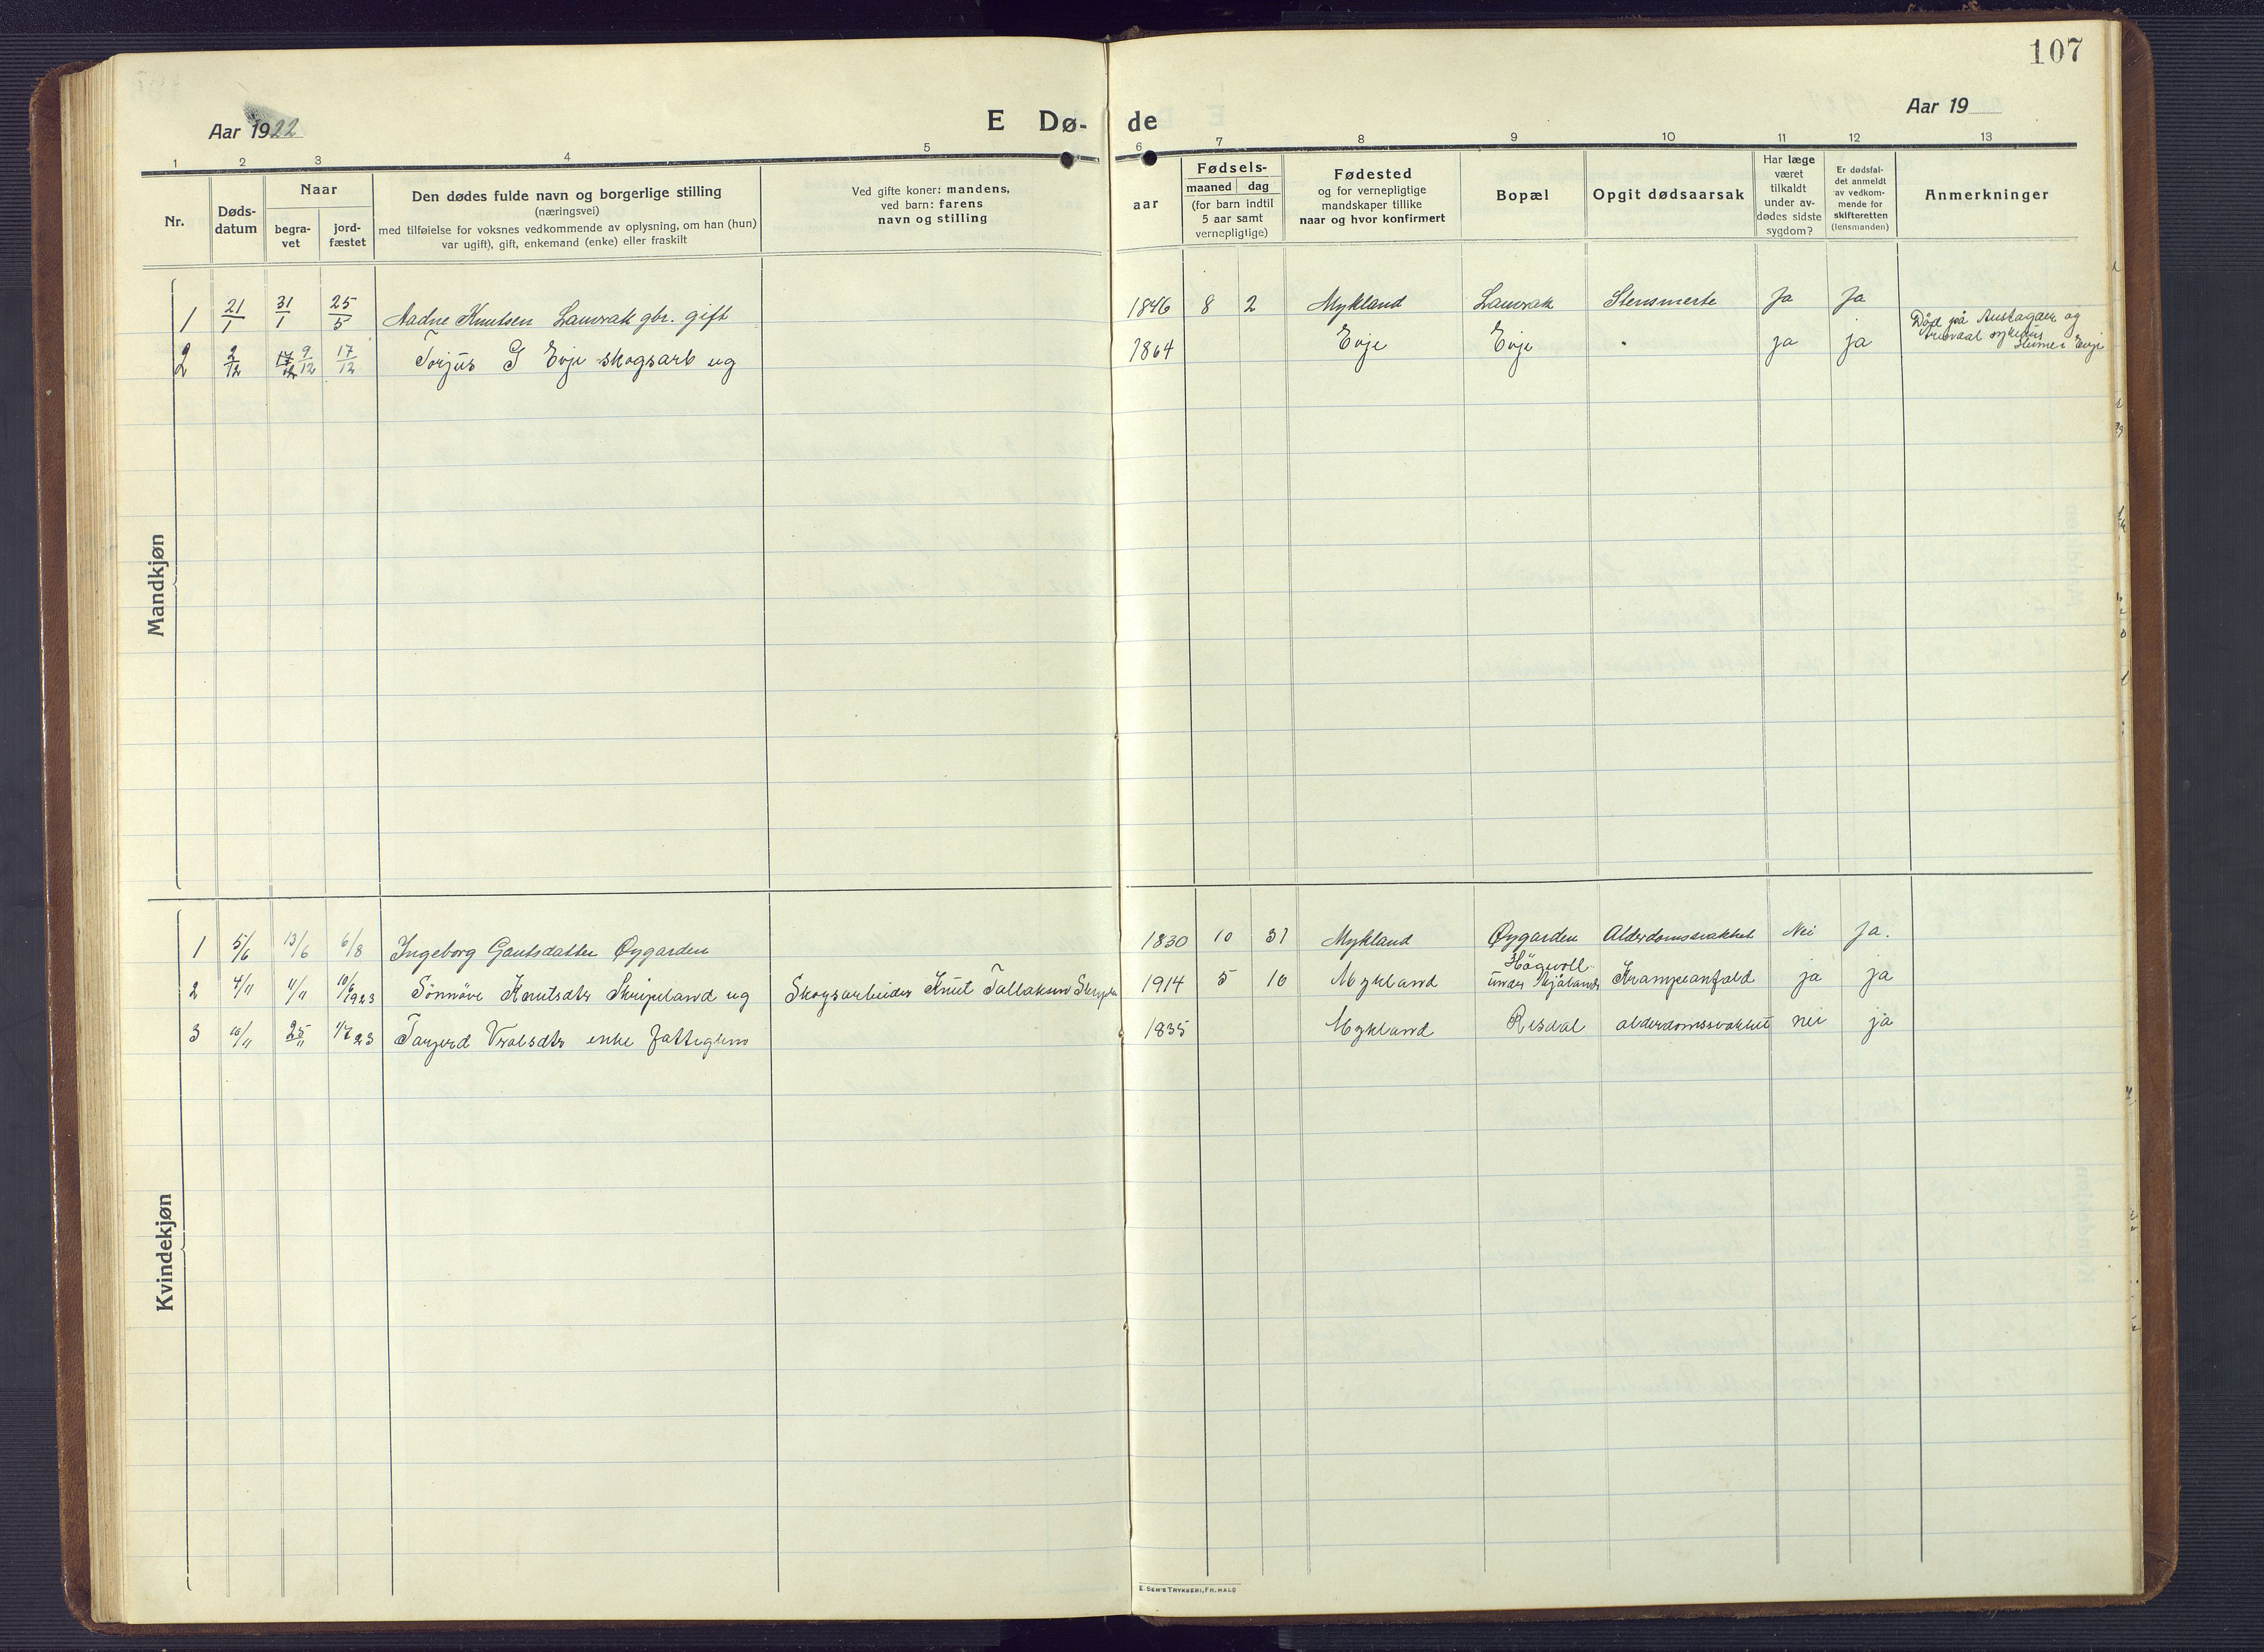 107
Aar 1922
E Dø-
de
Aar 19
1 2 3 4 5 6 7 8 9 10 11 12 13
Nr.
Døds-
datum
Naar
begra-
vet
jord-
fæstet
Den dødes fulde navn og borgerlige stilling
(næringsvei)
med tilføielse for voksnes vedkommende av oplysning, om han (hun)
var ugift), gift, enkemand (enke) eller fraskilt
Ved gifte koner: mandens,
ved barn: farens
navn og stilling
aar
Fødsels-
maaned dag
(for barn indtil
5 aar samt
vernepligtige)
Fødested
og for vernepligtige
mandskaper tillike
naar og hvor konfirmert
Bopæl
Opgit dødsaarsak
Har læge
været
tilkaldt
under av-
dødes sidste
sygdom?
Er dødsfal-
det anmeldt
av vedkom-
mende for
skifteretten
(lensmanden)
Anmerkninger
Mandkjøn
1 21/1 31/1 25/5 Aadne Knutsen Lauvrak gbr. gift 1846 8 2 Mykland Lauvrak Stensmerte Ja Ja
2 2/12 17/12 9/12 17/12 Torjus G Evje skogsarb ug 1864 Evje Evje " ja ja
Død på Austagder og
sykehus
Evje
Kvindekjøn
1 5/6 13/6 6/8 Ingeborg Gautsdatter Øygarden 1830 10 31 Mykland Øygarden Alderdomssvakhet Nei Ja.
2 4/11 11/11 10/6 1923 Sønnøve Knutsdtr Skripeland ug Skogsarbeider Knut Tallaksen 1914 5 10 Mykland Høgvoll
under Krampeanfald ja ja
3 25/11 1/7 23 Targjerd Vraalsdtr enke fattiglem 1835 Mykland Risdal alderdomssvakhet nei ja
E. SEM'S TRYKKERI, FR.HALD